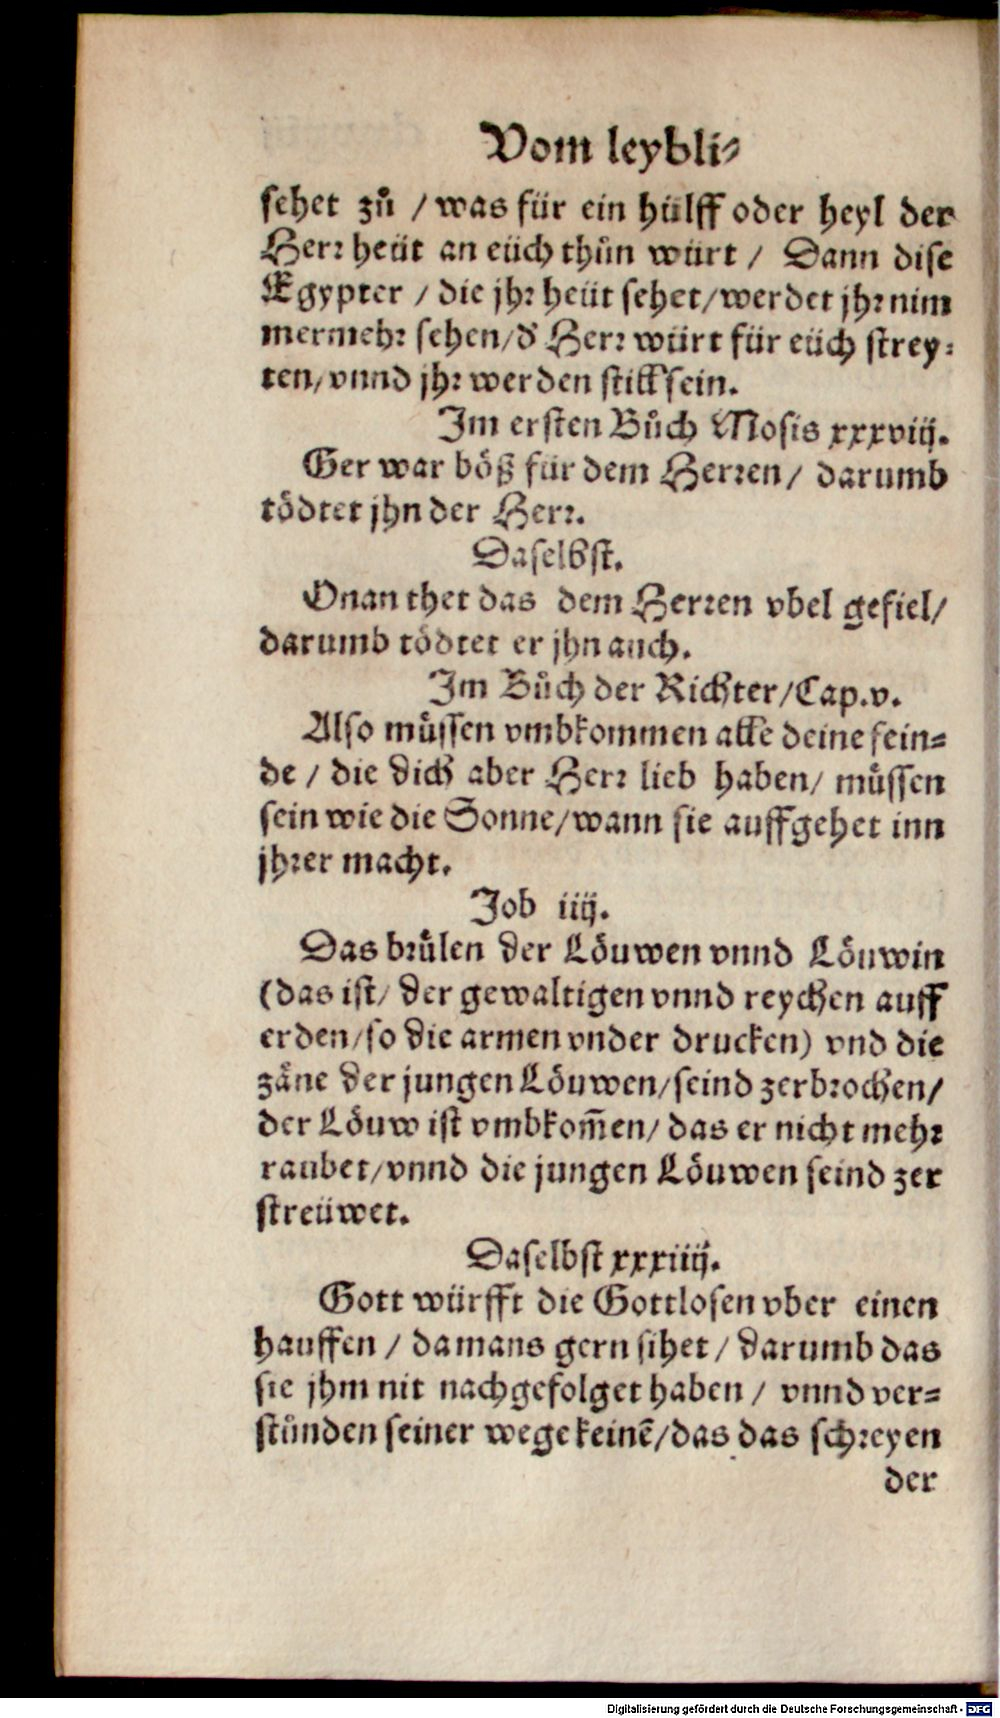 Vom leybli⸗
sehet zů / was für ein hülff oder heyl der
Herr heüt an eüch thůn würt / Dann dise
Ægypter / die jhr heüt sehet / werdet jhr nim
mermehr sehen / d' Herr würt für eüch strey⸗
ten / vnnd jhr werden still sein.
Im ersten Bůch Mosis xxxviij.
Ger war böß für dem Herren / darumb
tödtet jhn der Herr.
Daselbst.
Onan thet das dem Herren vbel gefiel /
darumb tödtet er jhn auch.
Im Bůch der Richter / Cap. v.
Also müssen vmbkommen alle deine fein⸗
de / die dich aber Herr lieb haben / müssen
sein wie die Sonne / wann sie auffgehet inn
jhrer macht.
Job iiij.
Das brülen der Löuwen vnnd Löuwin
(das ist / der gewaltigen vnnd reychen auff
erden / so die armen vnder drucken) vnd die
zäne der jungen Löuwen / seind zerbrochen /
der Löuw ist vmbkom̃en / das er nicht mehr
raubet / vnnd die jungen Löuwen seind zer
streüwet.
Daselbst xxxiiij.
Gott würfft die Gottlosen vber einen
hauffen / da mans gern sihet / darumb das
sie jhm nit nachgefolget haben / vnnd ver⸗
stůnden seiner wege keinẽ / das das schreyen
der
Digitalisierung gefördert durch die Deutsche Forschungsgemeinschaft - DFG